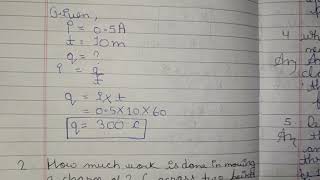 Given,
i = 0.5A
t = 10m
q = ?
i = q/t
q = i x t
= 0.5x10x60
q = 300 C
2. How much work is done in moving
a charge of 2 C across two points
4
An
5.
An